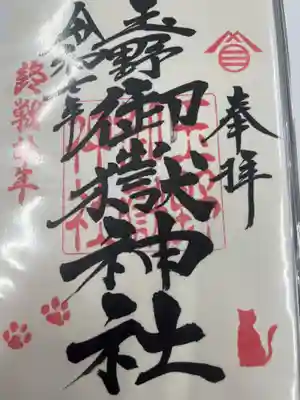 奉拝
玉野御嶽神社
令和七年
終戦年